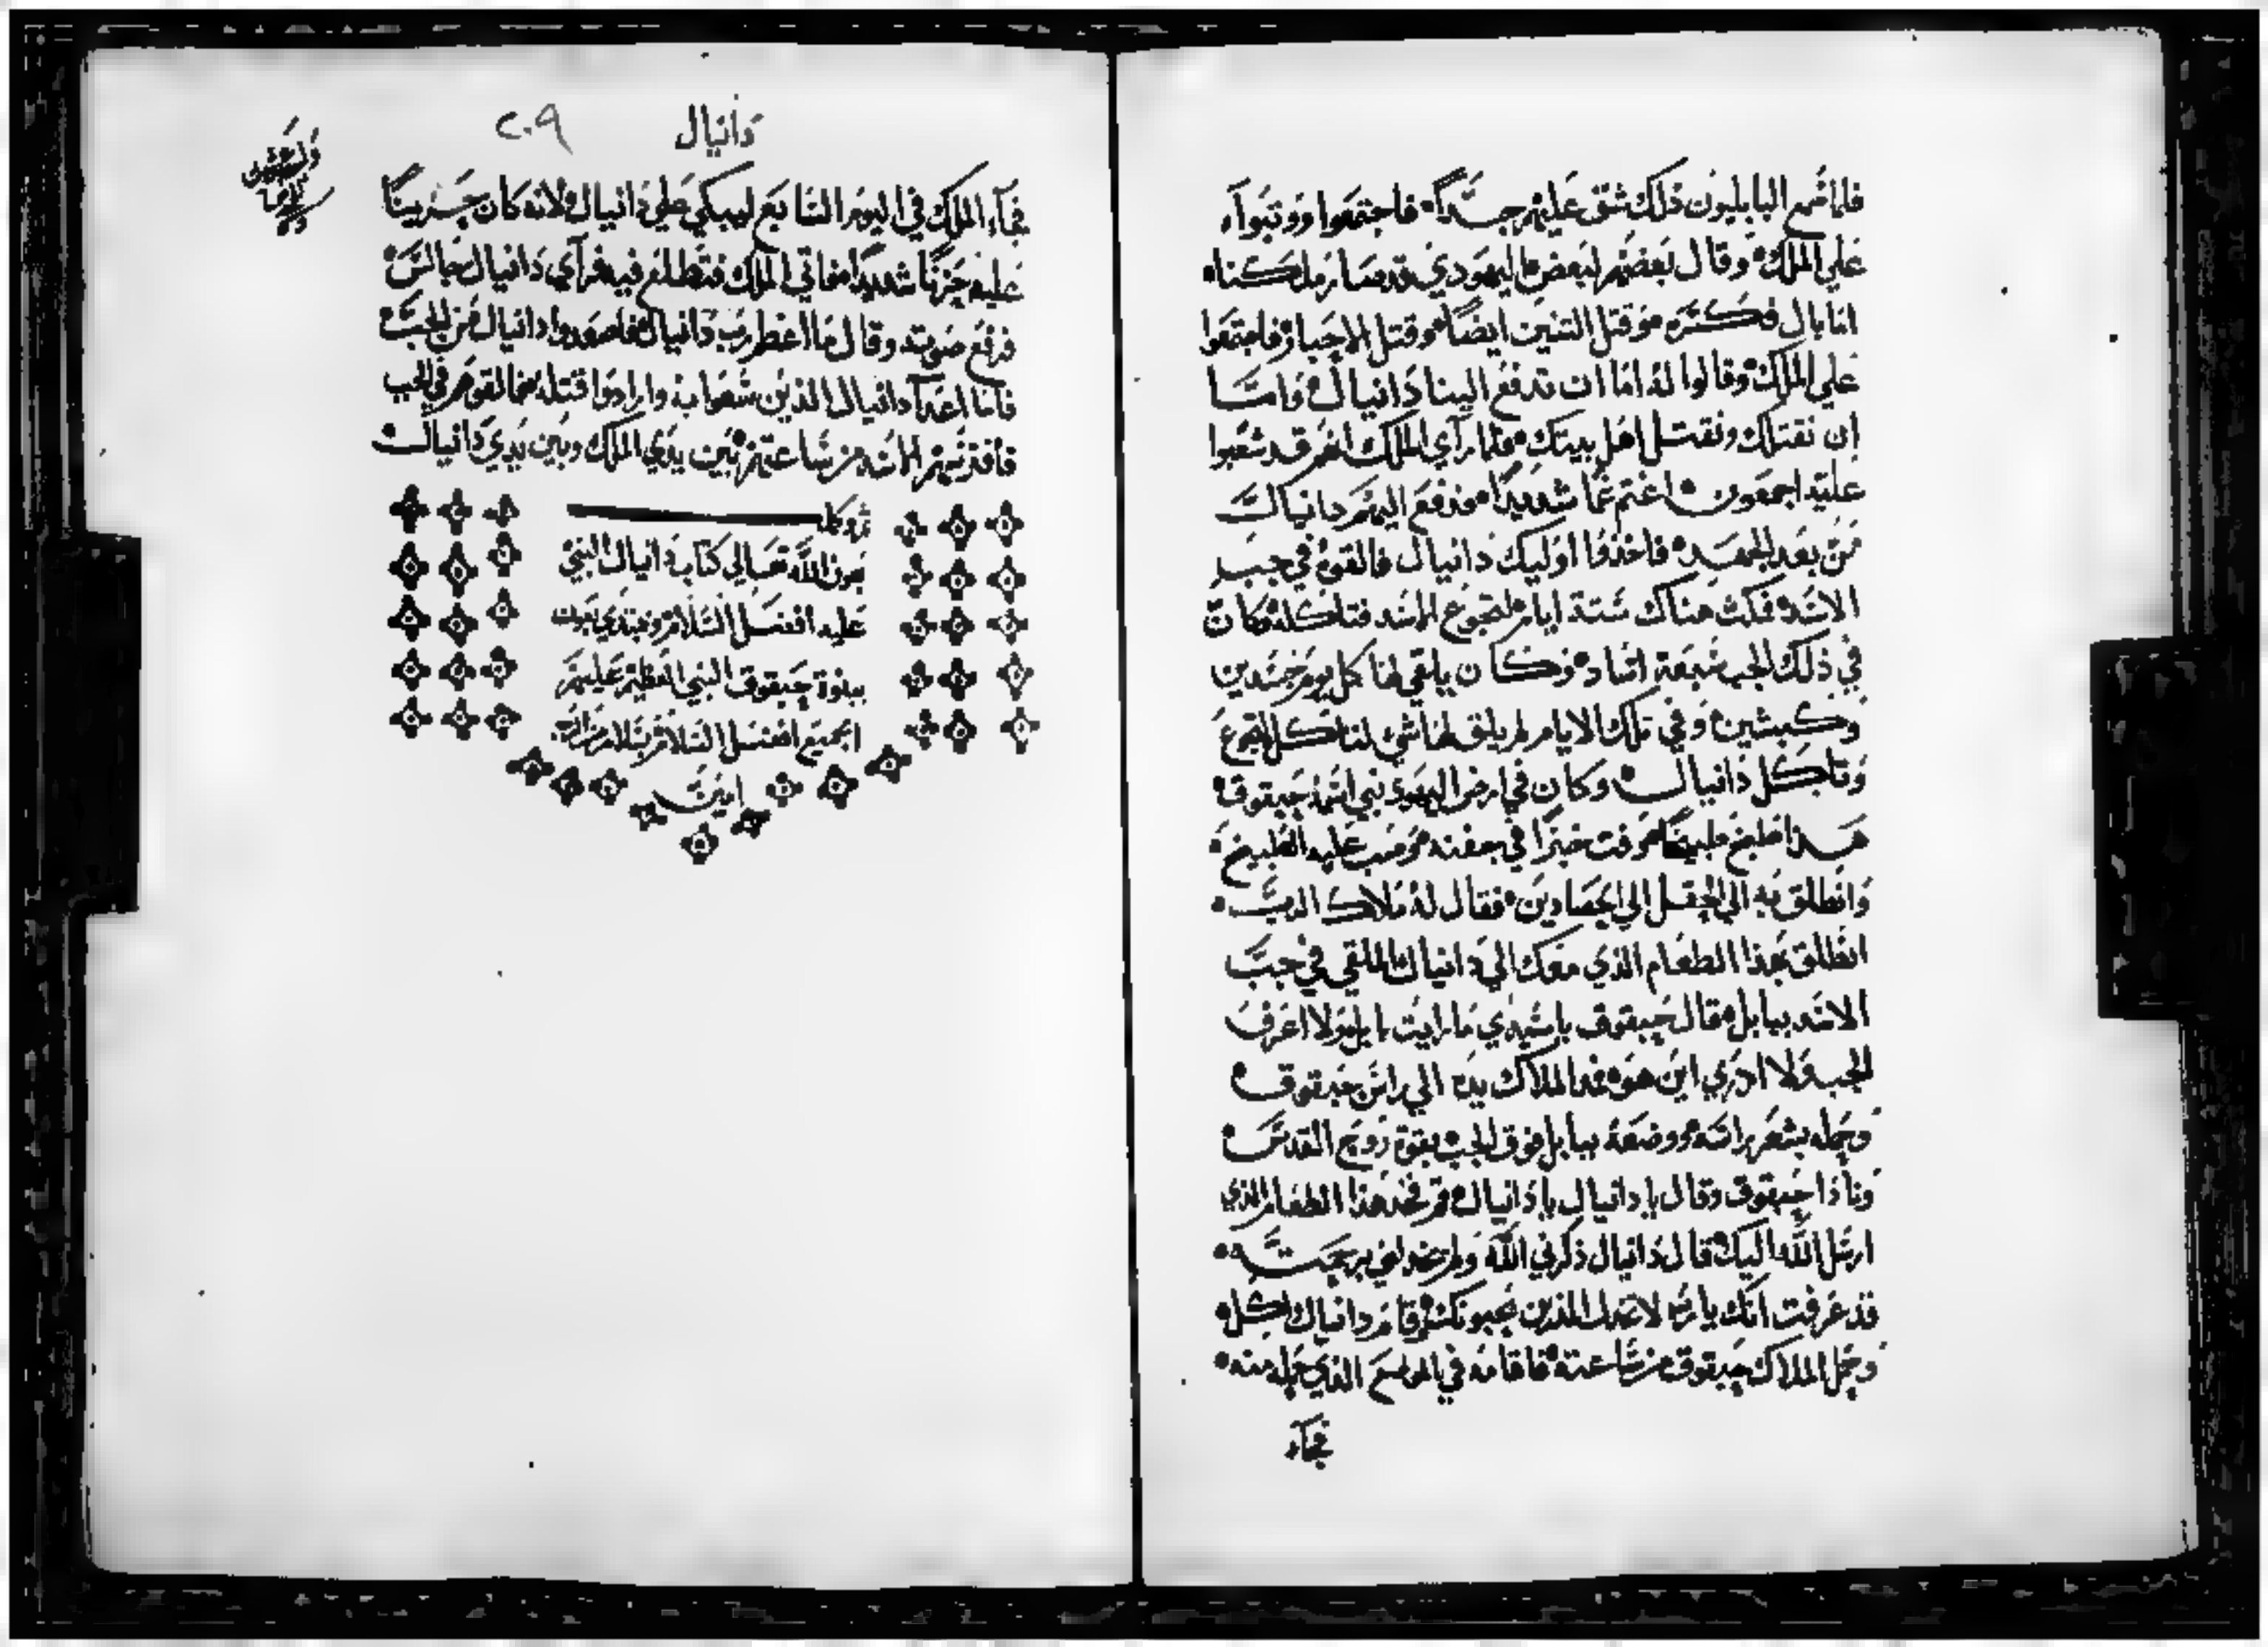 فلما سمع البابليون ذلك شق عليهم جداً فاجتمعوا ووتبوآء
علي الملك وقال بعضهم لبعض اليهودي قد صار ملكنا
اما بال فكسره وقتل التنين ايضاً وقتل الاحبار فاجتمعوا
علي الملك وقالوا له اما ان تدفع الينا دانيال واما
ان نقتلك ونقتل اهل بيتك فلما رآي الملك انهم قد شغبوا
عليه اجمعون اغتم غما شديداً ودفع اليهم دانيال
من بعد الجهد فاخذوا اوليك دانيال فالقوه في جب
الاسد فمكث هناك ستة ايام لتجوع الاسد فتاكله وكان
في ذلك الجب سبعة اساد وكان يلقي لها كل يوم جسدين
وكبشين وفي تلك الايام لم يلق لها شي لتاكل لتجوع
وتاكل دانيال وكان في ارض اليهود نبي اسمه حبقوق
هذا طبخ طبيخاً وفت خبزاً في جفنه وصب عليه الطبيخ
وانطلق به الي الحقل الي الحصادين فقال له ملاك الرب
انطلق بهذا الطعام الذي معك الي دانيال الملقي في جب
الاسد ببابل قال حبقوق ياسيدي ما رايت بابل ولا اعرف
الجب ولا ادري اين هو فمد الملاك يده الي راس حبقوق
وحمله بشعر راسه ووضعه ببابل فوق الجب بقوة روح القدس
ونادا حبقوق وقال يا دانيال يا دانيال قم فخذ هذا الطعام الذي
ارسل الله اليك قال دانيال ذكرني الله ولم
قد عرفت انك يارب لا الذين يحبونك وقام دانيال فاكل
وحمل الملاك حبقوق من ساعته فاقامه في الموضع الذي حمله منه
فجآء
دانيال
٢٠٩
فجآء الملك في اليوم السابع ليبكي علي دانيال لانه كان حزيناً
عليه حزناً شديداً فاتي الملك فتطلع فيه فرآي دانيال جالس
فرفع صوته وقال ما اعظم رب دانيال فاصعدوا دانيال من الجب
فاما اعدآ دانيال الذين شغبوا به وارادوا قتله فالقوهم في الجب
فافترسهم الاسد من ساعتهم بين يدي الملك وبين يدي دانيال
تم وكمل
بعون الله تعالي كتاب دانيال النبي
عليه افضل السلام ونبتدي بعون
بنبوة حبقوق النبي العظيم عليهم
اجمعين افضل السلام
امين